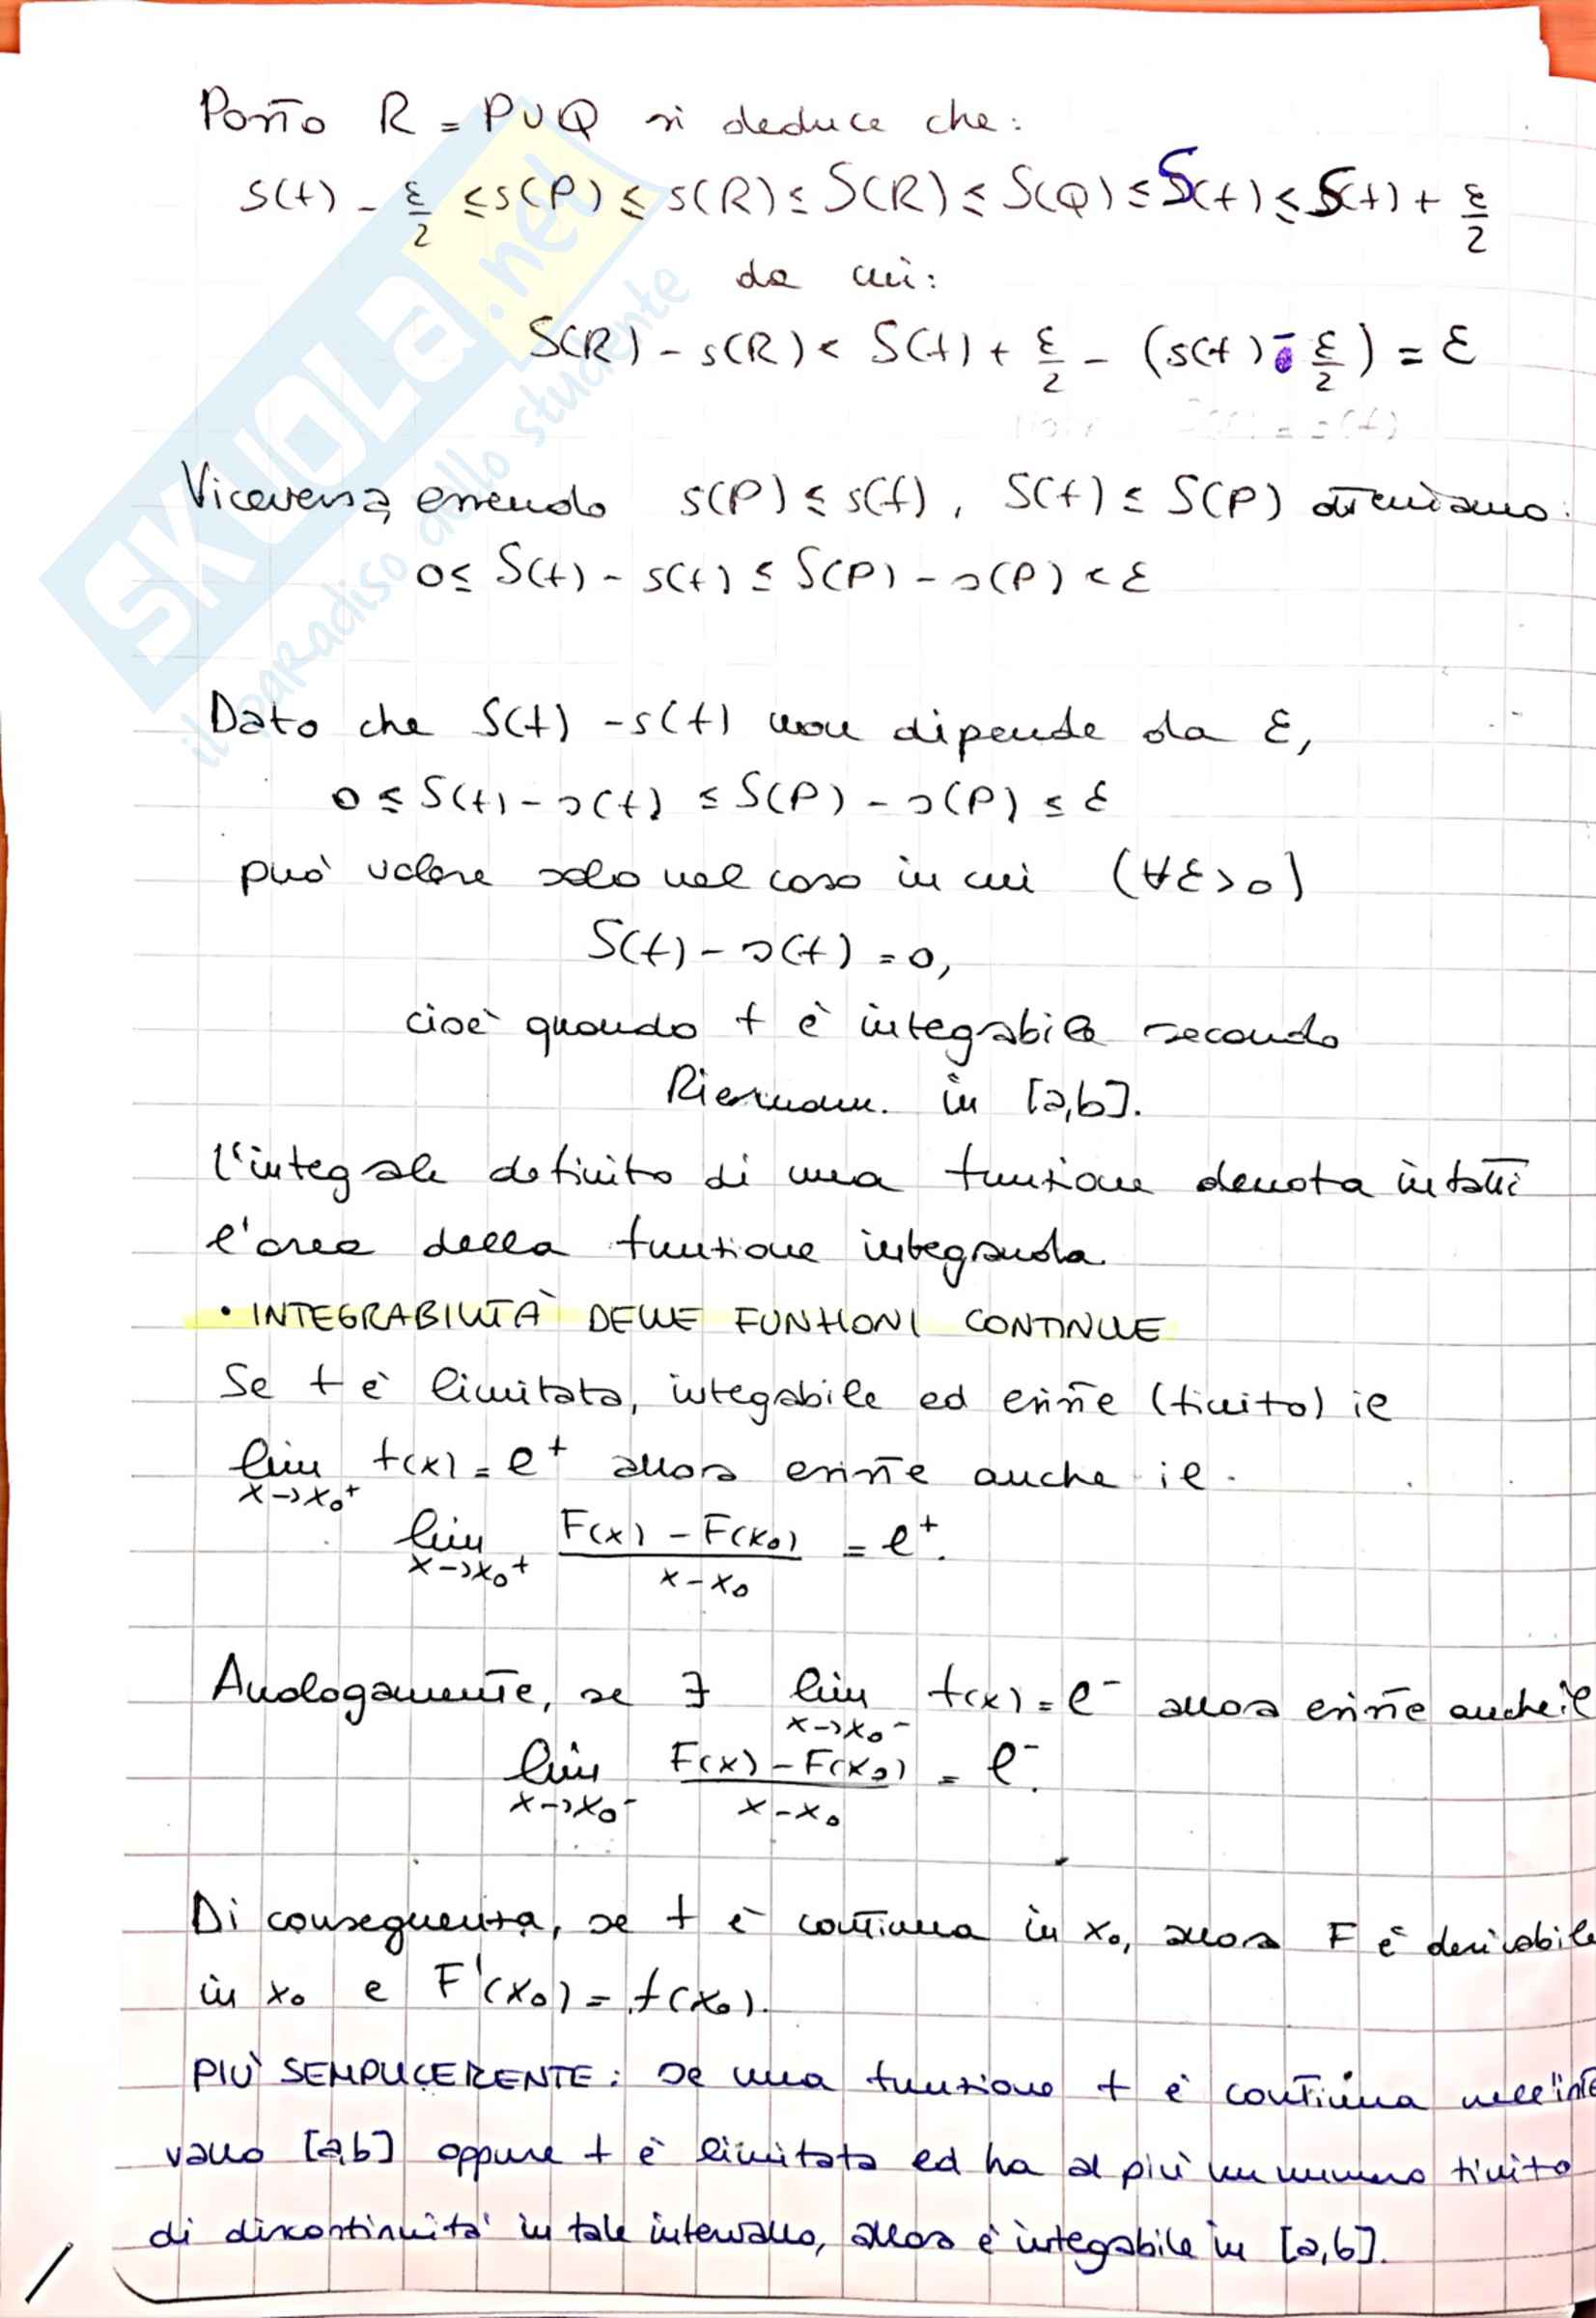 Posto R = P∪Q si deduce che:
s(f) - ε/2 ≤ s(P) ≤ s(R) ≤ S(R) ≤ S(Q) ≤ S(f) ≤ S(f) + ε/2
da cui:
S(R) - s(R) < S(f) + ε/2 - (s(f) - ε/2) = ε
Viceversa, essendo s(P) ≤ s(f), S(f) ≤ S(P) otteniamo:
0 ≤ S(f) - s(f) ≤ S(P) - s(P) < ε
Dato che S(f) - s(f) non dipende da ε,
0 ≤ S(f) - s(f) ≤ S(P) - s(P) ≤ ε
può valere solo nel caso in cui (∀ε>0)
S(f) - s(f) = 0,
cioè quando f è integabile secondo
Riemann. in [a,b].
L'integrale definito di una funzione denota infatti
l'area della funzione integranda.
• INTEGRABILITÀ DELLE FUNZIONI CONTINUE
Se f è limitata, integabile ed esiste (finito) il
lim x→x₀⁺ f(x) = l⁺ allora esiste anche il
lim x→x₀⁺ (F(x) - F(x₀))/(x - x₀) = l⁺.
Analogamente, se ∃ lim x→x₀⁻ f(x) = l⁻ allora esiste anche il
lim x→x₀⁻ (F(x) - F(x₀))/(x - x₀) = l⁻.
Di conseguenza, se f è continua in x₀, allora F è derivabile
in x₀ e F'(x₀) = f(x₀).
PIÙ SEMPLICEMENTE: se una funzione f è continua nell'inte
vallo [a,b] oppure f è limitata ed ha al più un numero finito
di discontinuità in tale intervallo, allora è integabile in [a,b].
SKUOLA.net
il paradiso dello studente